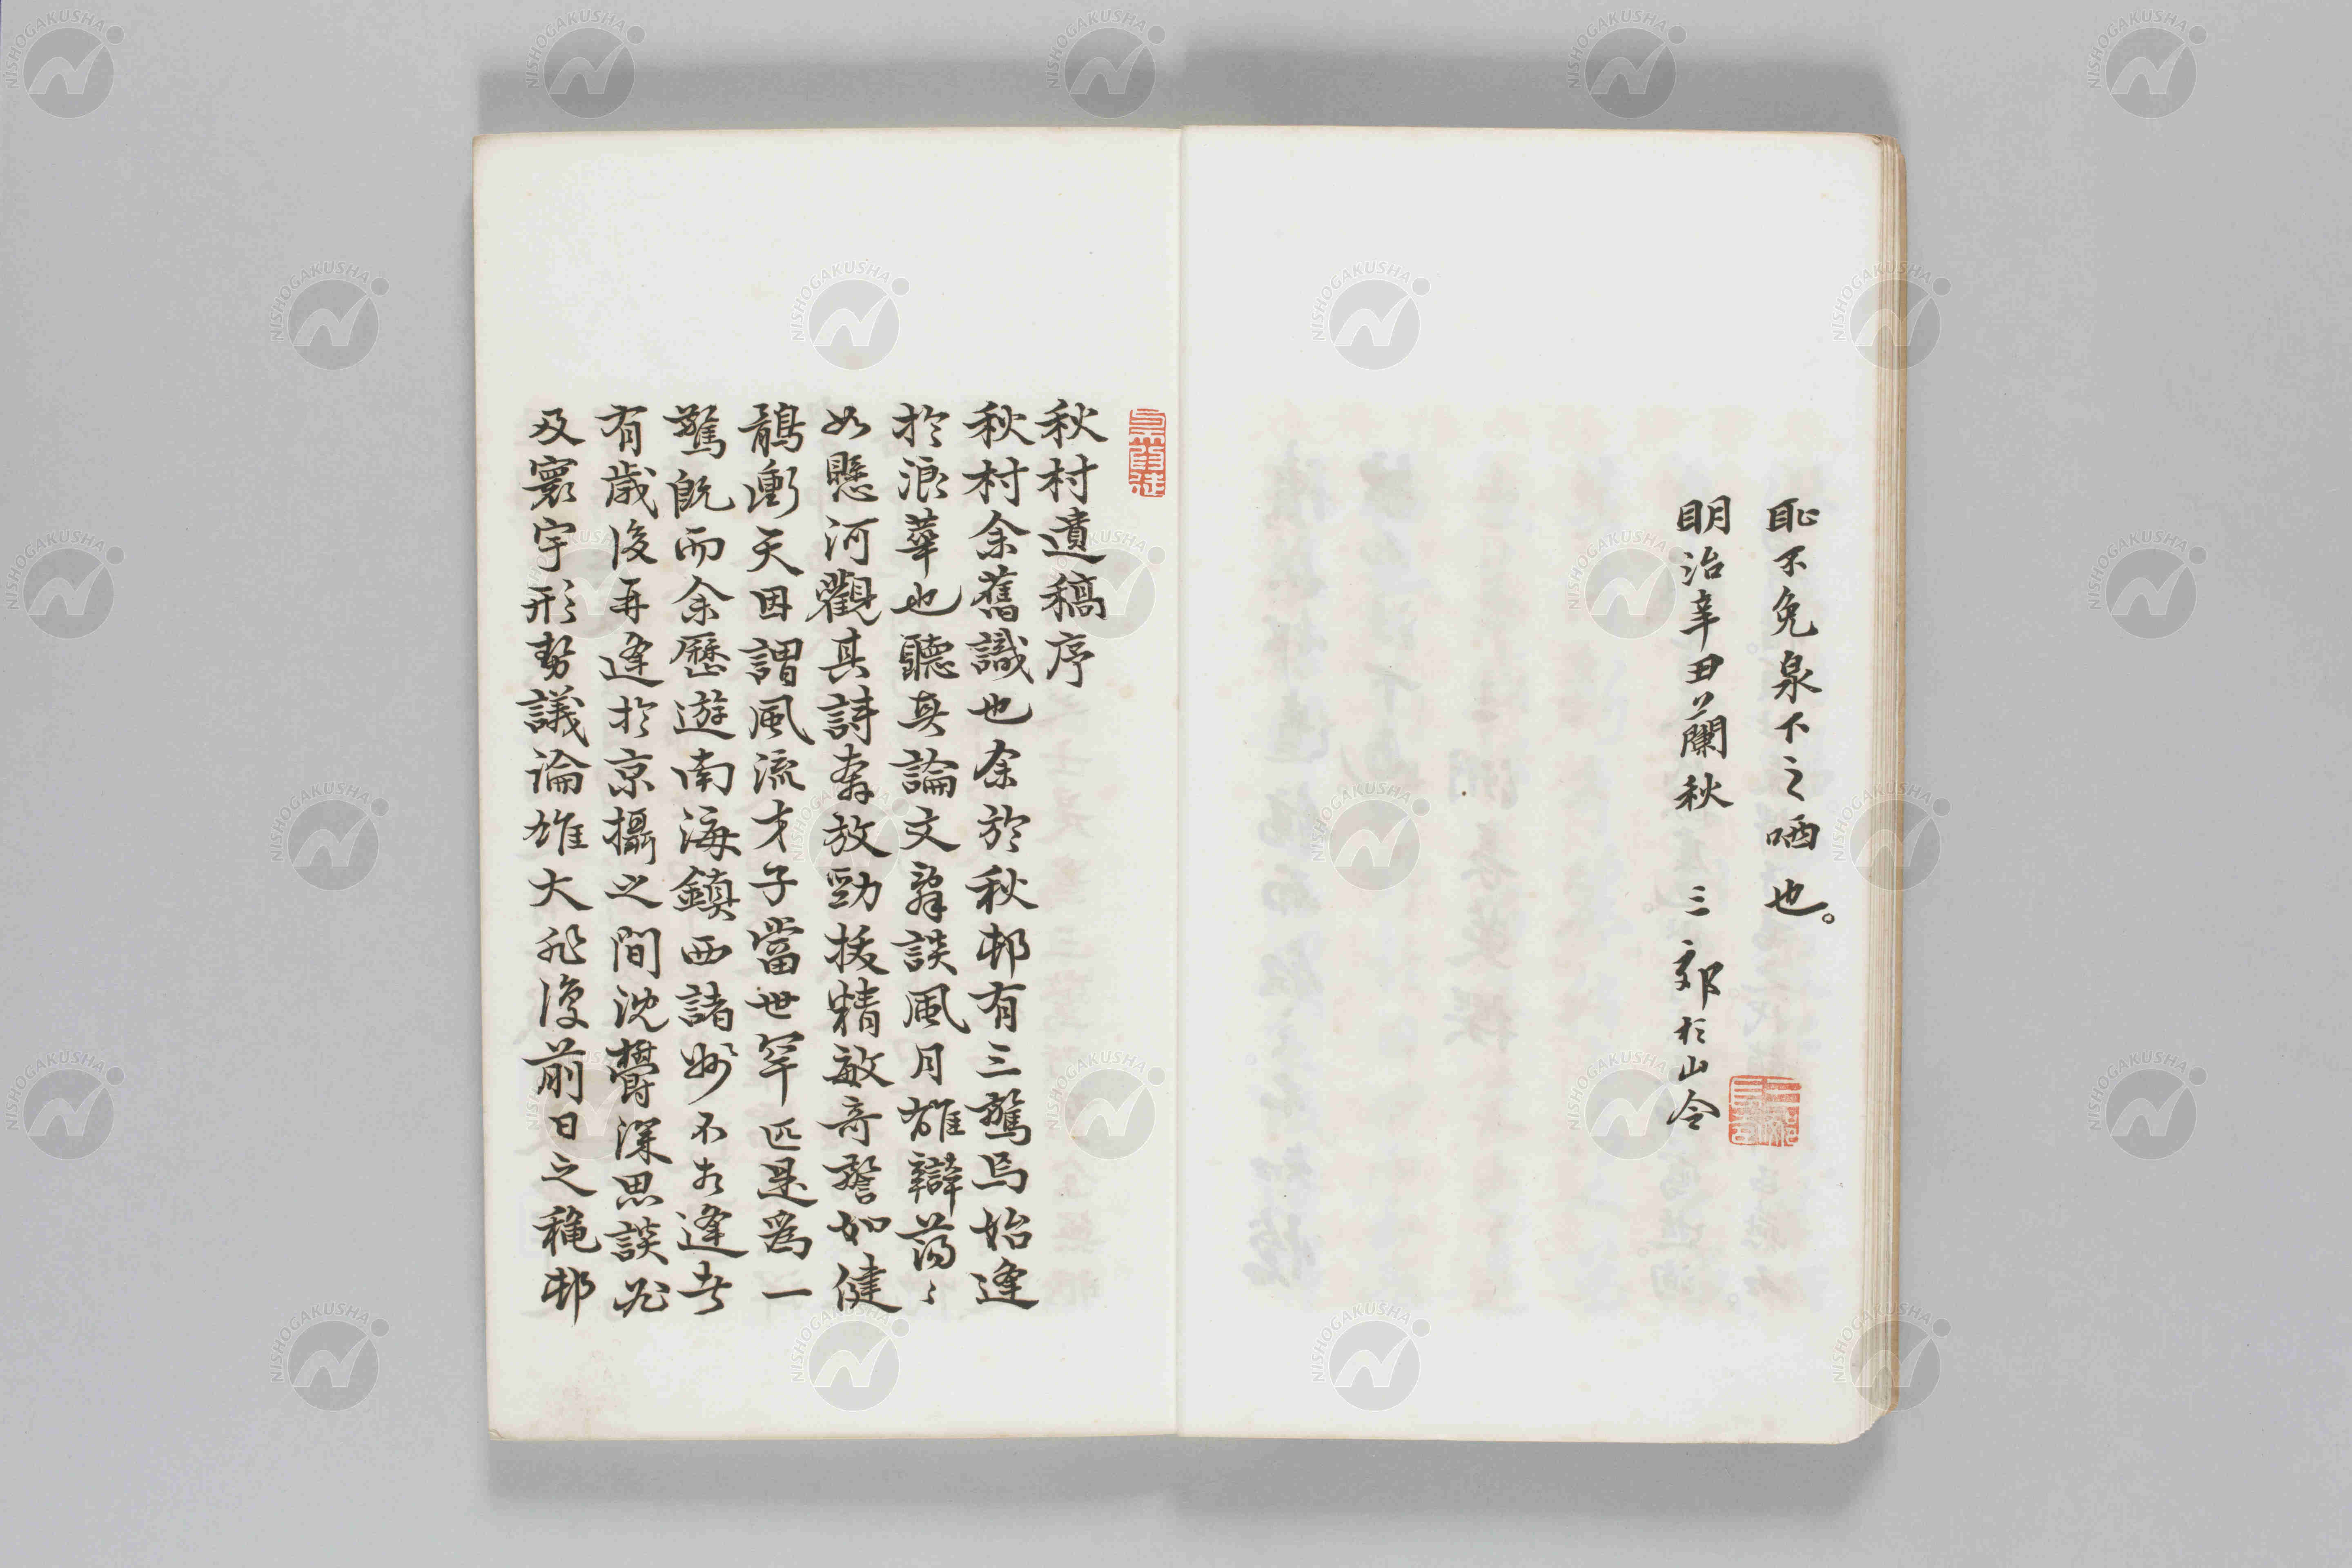 恥不免泉下之哂也。
明治辛丑蘭秋 三郊於山令
秋村遺稿序
秋村余舊識也余於秋邨有三驚焉始逢
於浪華也聽其論文辭談風月雄辯蕩々
如懸河觀其詩奔放勁拔精敏奇警如健
鶻衝天因謂風流才子當世罕匹是爲一
驚既而余歷遊南海鎮西諸州不相逢者
有歲後再逢於京攝之間沈鬱深思談必
及寰宇形勢議論雄大非復前日之龝邨
NISHOGAKUSHA